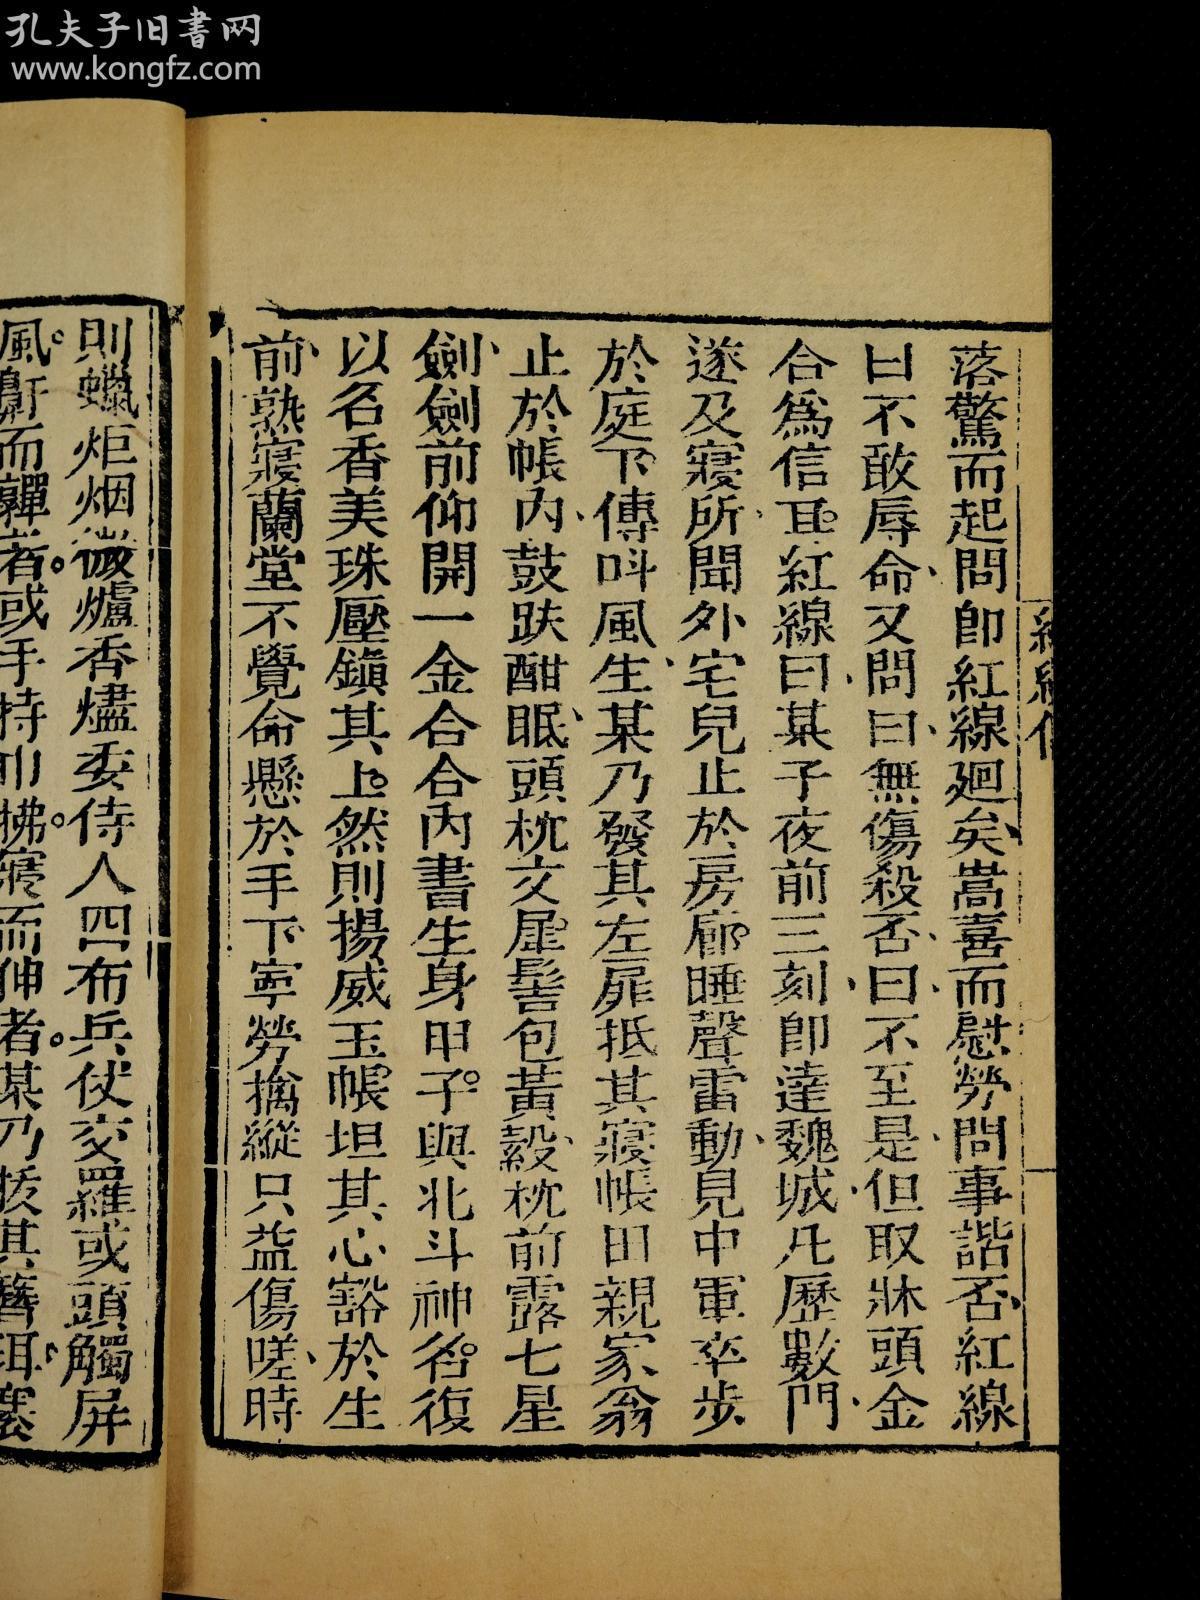 孔夫子旧書网
www.kongfz.com
落驚而起問即紅線廻矣嵩喜而慰勞問事諧否紅線
曰不敢辱命又問曰無傷殺否曰不至是但取牀頭金
合爲信耳紅線曰某子夜前三刻即達魏城凡歷數門
遂及寢所聞外宅兒止於房廊睡聲雷動見中軍卒步
於庭下傳呌風生某乃發其左扉抵其寢帳田親家翁
止於帳內鼓趺酣眠頭枕文犀髻包黃縠枕前露七星
劍劍前仰開一金合合內書生身甲子與北斗神名復
以名香美珠壓鎭其上然則揚威玉帳坦其心豁於生
前熟寢蘭堂不覺命懸於手下寧勞擒縱只益傷嗟時
則蠟炬烟微爐香燼委侍人四布兵仗交羅或頭觸屏
風鼾而嚲者或手持巾拂寢而伸者某乃拔其簪珥